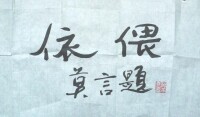 依偎
莫言題